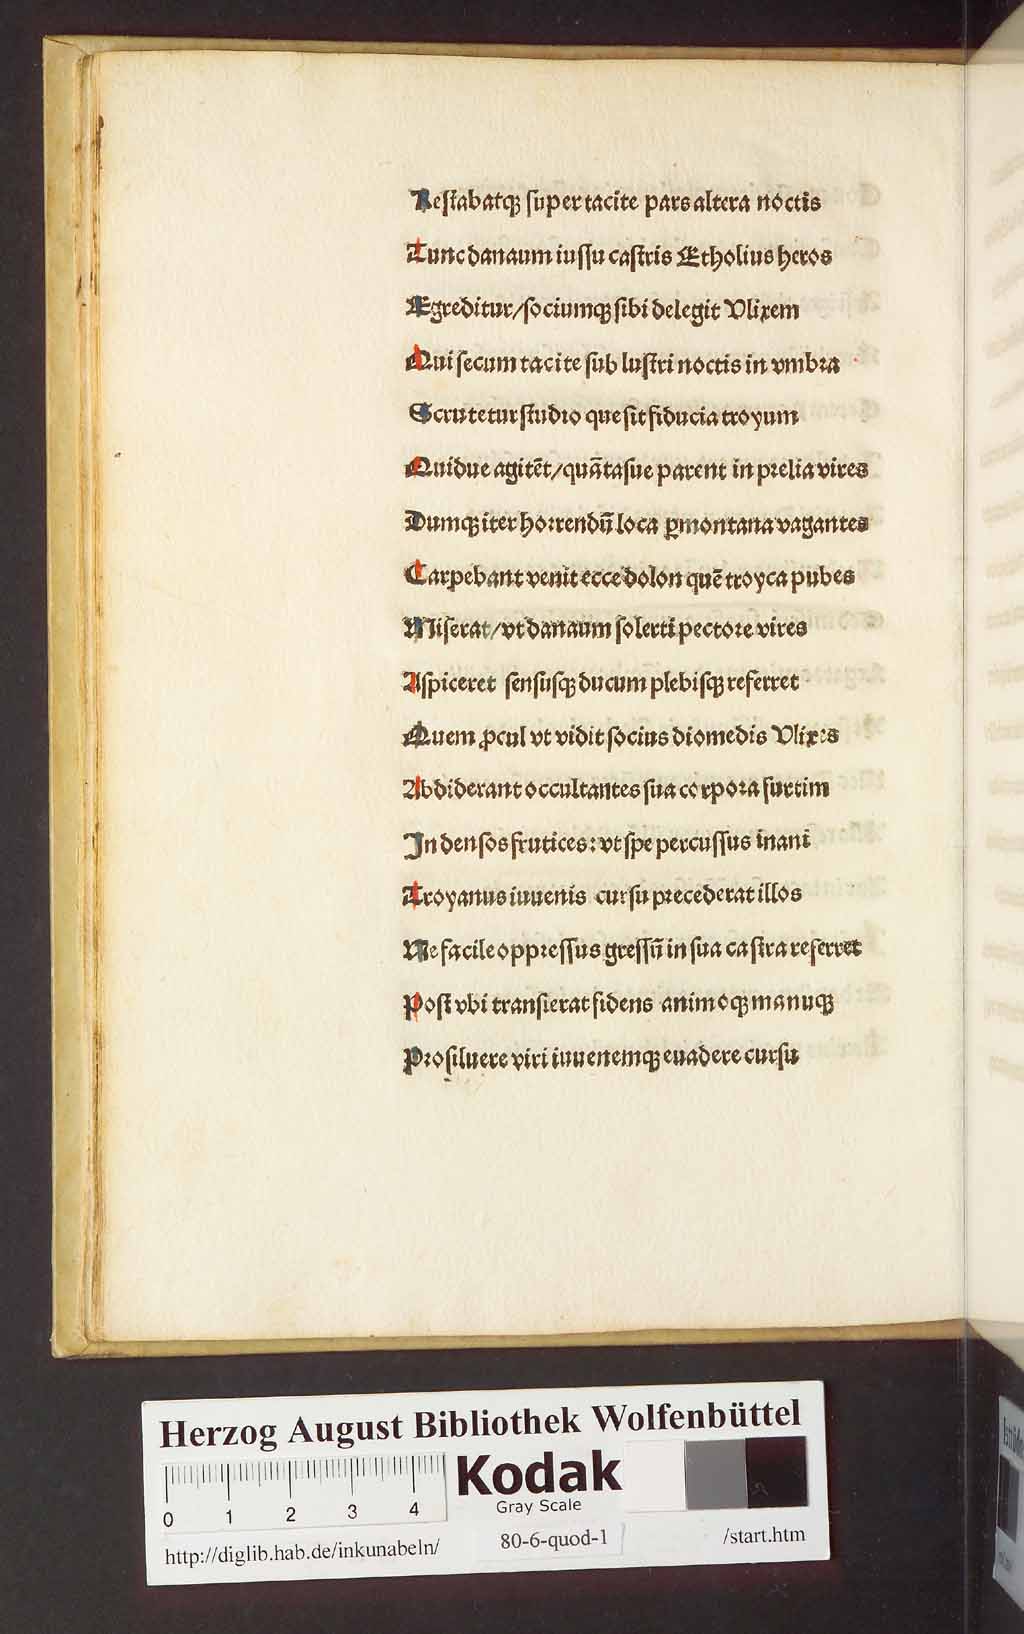 Restabatqꝫ super tacite pars altera noctis
Tunc danaum iussu castris Ætholius heros
Ægreditur/sociumqꝫ sibi delegit Vlixem
Qui secum tacite sub lustri noctis in vmbra
Scrutetur studio que sit fiducia troyum
Quidue agitēt/quātasue parent in prelia vires
Dumqꝫ iter horrendū loca ꝑ montana vagantes
Carpebant venit ecce dolon quē troyca pubes
Miserat/vt danaum solerti pectore vires
Aspiceret sensusqꝫ ducum plebisqꝫ referret
Quem ꝓcul vt vidit socius diomedis Vlixes
Abdiderant occultantes sua corpora furtim
In densos frutices: vt spe percussus inani
Troyanus iuuenis cursu precederat illos
Ne facile oppressus gressū in sua castra referret
Post vbi transierat fidens animoqꝫ manuqꝫ
Prosiluere viri iuuenemqꝫ euadere cursu
Herzog August Bibliothek Wolfenbüttel
Kodak
Gray Scale
0 1 2 3 4
http://diglib.hab.de/inkunabeln/ 80-6-quod-1 /start.htm